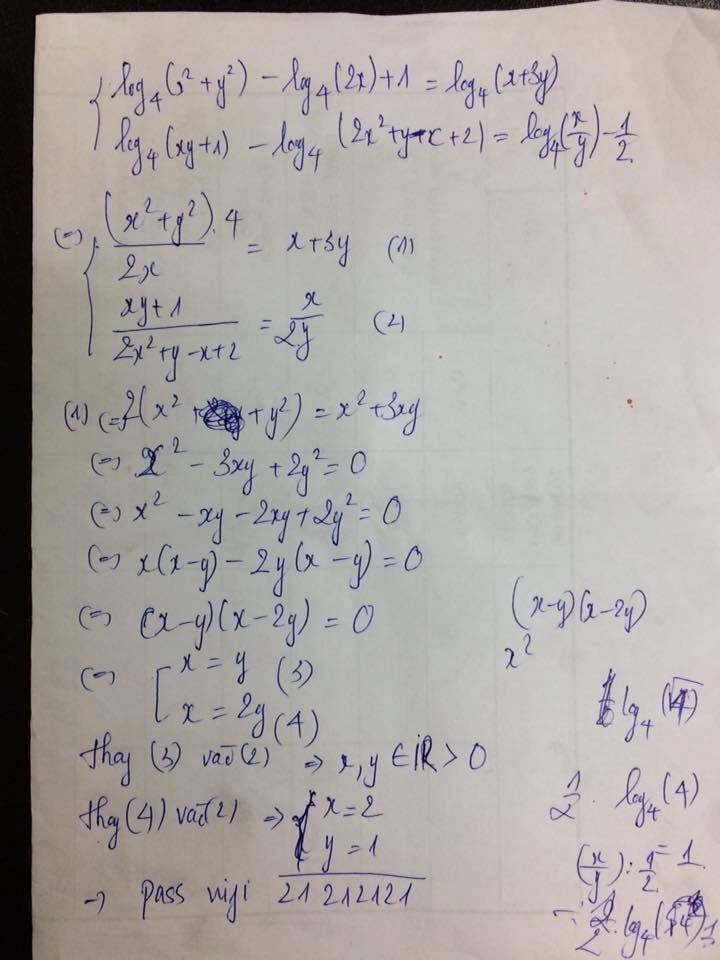 log₄(x²+y²) - log₄(2x)+1 = log₄(x+3y)
log₄(xy+1) - log₄(2x²+y-x+2) = log₄(x/y) - 1/2
(=) (x²+y²).4 / 2x = x+3y (1)
xy+1 / 2x²+y-x+2 = x/2y (2)
(1) (=) 2(x² + y²) = x²+3xy
(=) x² - 3xy + 2y² = 0
(=) x² - xy - 2xy + 2y² = 0
(=) x(x-y) - 2y(x-y) = 0
(=) (x-y)(x-2y) = 0
(=) [ x = y (3)
x = 2y (4)
thay (3) vào (2) => x, y ∈ ℝ > 0
thay (4) vào (2) => { x = 2
y = 1
-> pass wifi 21 212121
(x-y)(x-2y)
x²
log₄(4)
1/2 . log₄(4)
(x/y) : 1/2 = 1